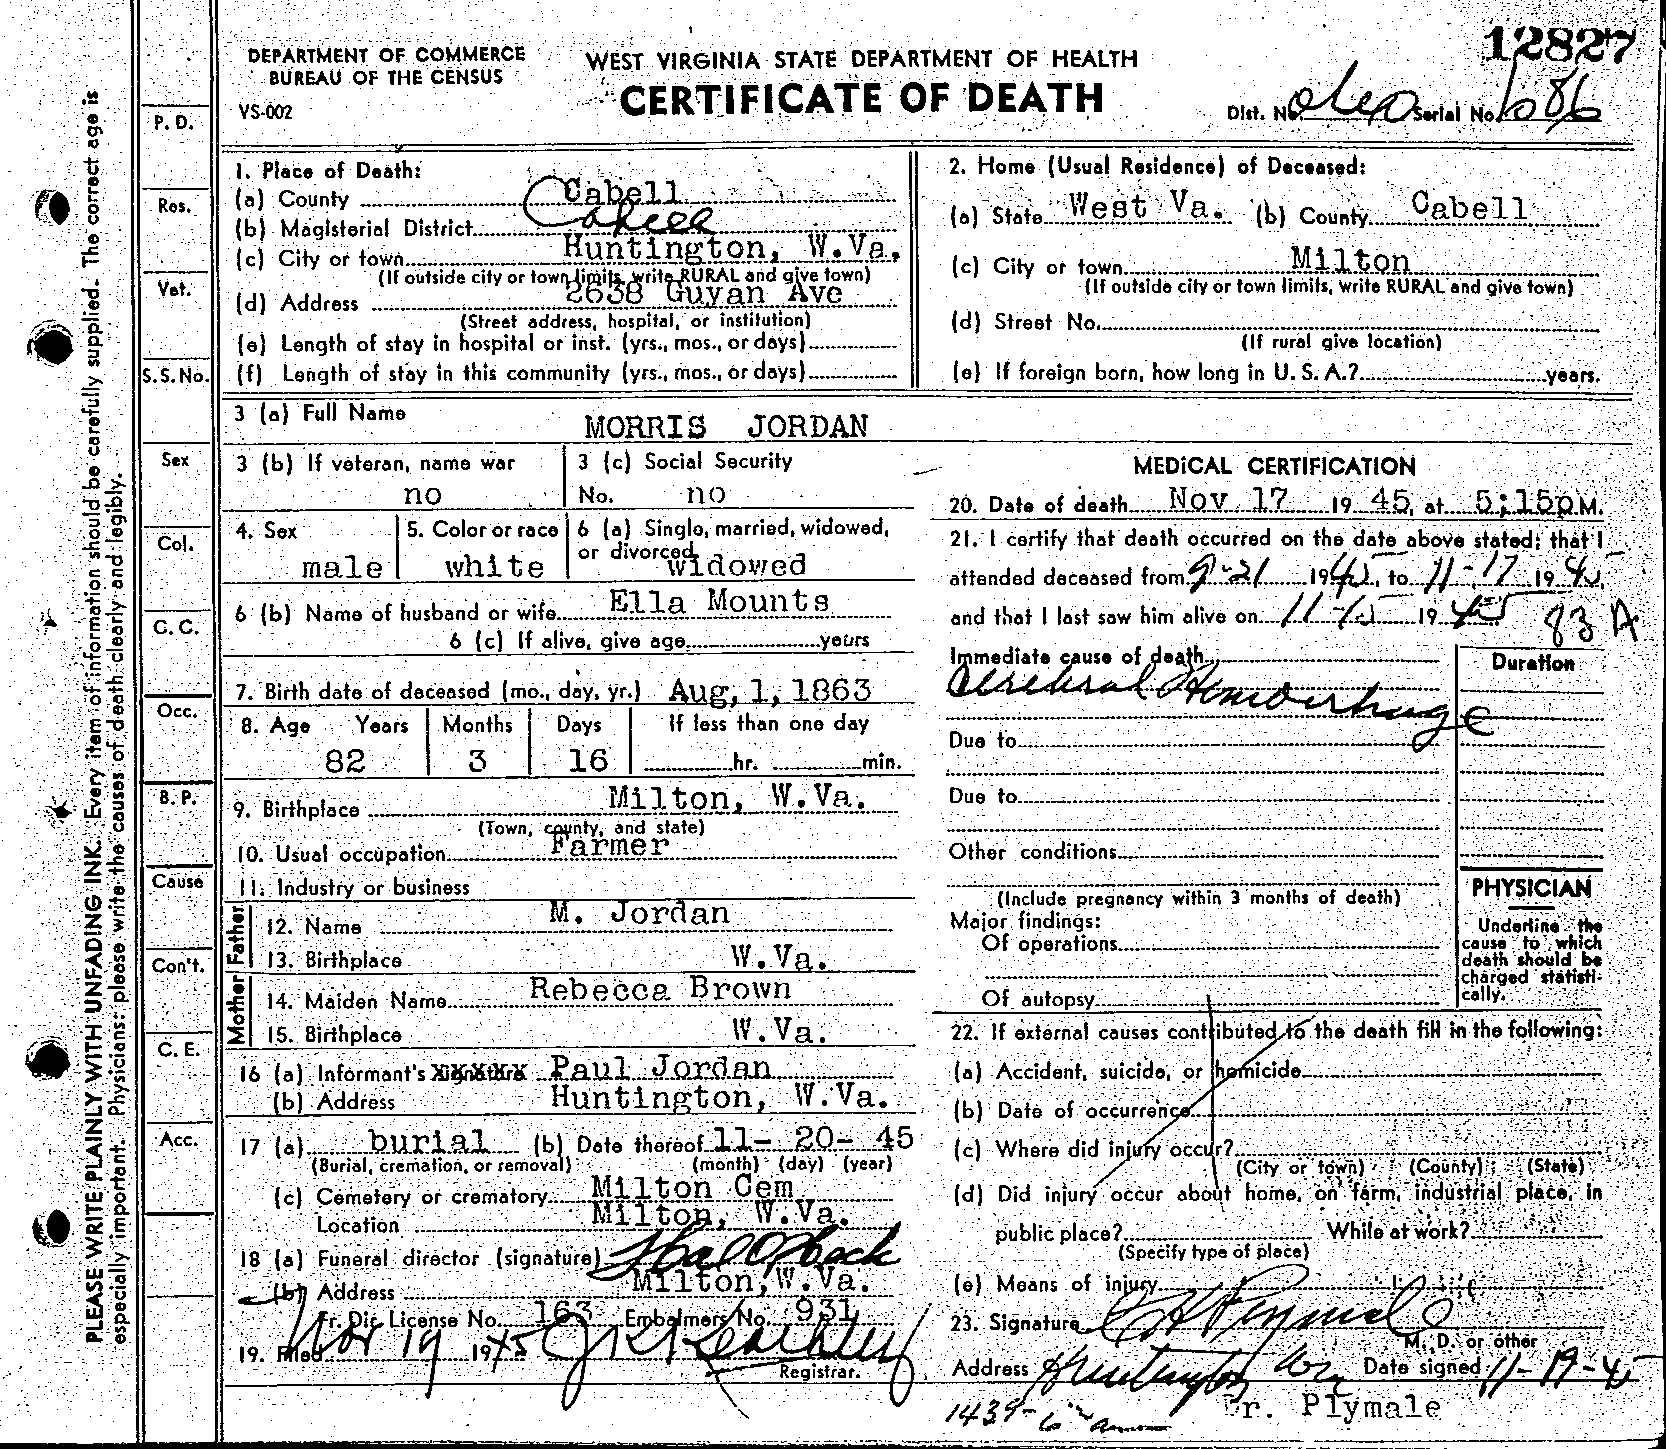 12827
DEPARTMENT OF COMMERCE
BUREAU OF THE CENSUS
VS-002
WEST VIRGINIA STATE DEPARTMENT OF HEALTH
CERTIFICATE OF DEATH
Dist. No. Serial No. 686
PLEASE WRITE PLAINLY WITH UNFADING INK. Every item of information should be carefully supplied. The correct age is
especially important. Physicians: please write the causes of death clearly and legibly.
P. D.
Res.
Vet.
S.S.No.
Sex
Col.
C. C.
Occ.
B. P.
Cause
Con't.
C. E.
Acc.
1. Place of Death:
(a) County Cabell
(b) Magisterial District Cabell
(c) City or town Huntington, W.Va.
(If outside city or town limits, write RURAL and give town)
(d) Address 2638 Guyan Ave
(Street address, hospital, or institution)
(e) Length of stay in hospital or inst. (yrs., mos., or days)
(f) Length of stay in this community (yrs., mos., or days)
2. Home (Usual Residence) of Deceased:
(a) State West Va. (b) County Cabell
(c) City or town Milton
(If outside city or town limits, write RURAL and give town)
(d) Street No.
(If rural give location)
(e) If foreign born, how long in U. S. A.? years.
3 (a) Full Name MORRIS JORDAN
3 (b) If veteran, name war
no
3 (c) Social Security
No. no
4. Sex
male
5. Color or race
white
6 (a) Single, married, widowed,
or divorced widowed
6 (b) Name of husband or wife Ella Mounts
6 (c) If alive, give age years
7. Birth date of deceased (mo., day, yr.) Aug, 1, 1863
8. Age Years Months Days If less than one day
82 3 16 hr. min.
9. Birthplace Milton, W.Va.
(Town, county, and state)
10. Usual occupation Farmer
11. Industry or business
Father
12. Name M. Jordan
13. Birthplace W.Va.
Mother
14. Maiden Name Rebecca Brown
15. Birthplace W.Va.
16 (a) Informant's Signature Paul Jordan
(b) Address Huntington, W.Va.
17 (a) burial (b) Date thereof 11- 20- 45
(Burial, cremation, or removal) (month) (day) (year)
(c) Cemetery or crematory Milton Cem
Location Milton, W.Va.
18 (a) Funeral director (signature)
(b) Address Milton, W.Va.
Fr. Dir. License No. 163 Embalmers No. 931
19. Filed Nov 19 1945
Registrar.
MEDICAL CERTIFICATION
20. Date of death Nov 17 19 45, at 5;15p M.
21. I certify that death occurred on the date above stated; that I
attended deceased from 9-21 1945, to 11-17 1945,
and that I last saw him alive on 11-15 1945
83 A
Immediate cause of death Duration
Cerebral Hemorrhage
Due to
Due to
Other conditions
(Include pregnancy within 3 months of death)
Major findings:
Of operations
Of autopsy
PHYSICIAN
Underline the
cause to which
death should be
charged statisti-
cally.
22. If external causes contributed to the death fill in the following:
(a) Accident, suicide, or homicide
(b) Date of occurrence
(c) Where did injury occur?
(City or town) (County) (State)
(d) Did injury occur about home, on farm, industrial place, in
public place? While at work?
(Specify type of place)
(e) Means of injury
23. Signature Plymale
M. D. or other
Address Huntington Date signed 11-19-45
1439-
Dr. Plymale